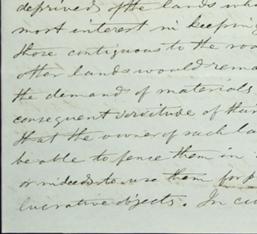 deprived, of the lands wh
most interest in keeping
those contiguous to the roa
other lands would rema
the demand of materials
consequent servitude of
that the owner of such la
be able to fence them in
or indeed to use them for p
lucrative objects. In